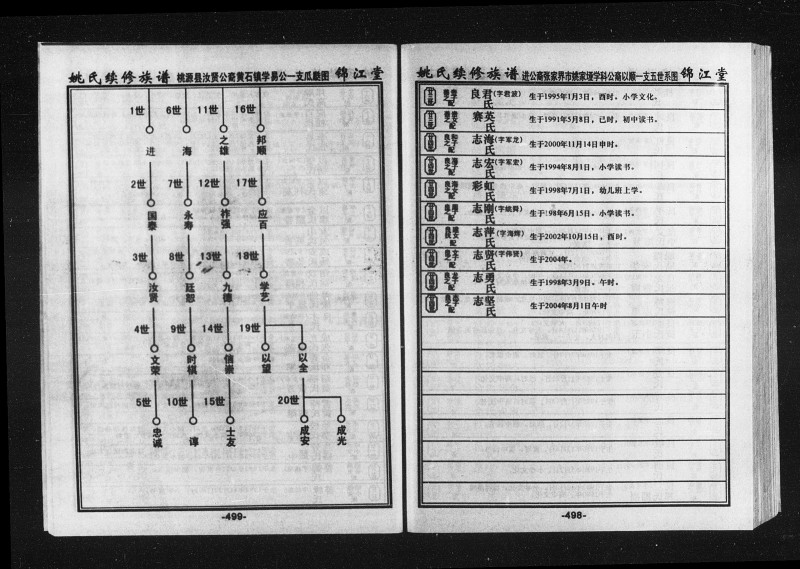 姚氏续修族谱 进公裔张家界市姚家垭学科公裔以顺一支五世系图 锦江堂
良君(字君波) 氏 配 生于1995年1月3日，酉时。小学文化。
赛英 氏 配 生于1991年5月8日，已时，初中读书。
志海(字军龙) 氏 配 生于2000年11月14日申时。
志宏(字军宏) 氏 配 生于1994年8月1日，小学读书。
彩虹 氏 配 生于1998年7月1日，幼儿班上学。
志刚 氏 配 生于!98年6月15日。小学读书。
志萍(字海辉) 氏 配 生于2002年10月15日，酉时。
志贤(字伟贤) 氏 配 生于2004年。
志勇 氏 配 生于1998年3月9日。午时。
志坚 氏 配 生于2004年8月1日午时
-498-
姚氏续修族谱 桃源县汝贤公裔黄石镇学易公一支瓜瓞图 锦江堂
1世 6世 11世 16世
进 海 之雄 邦顺
2世 7世 12世 17世
国泰 永寿 柞强 应百
3世 8世 13世 18世
汝贤 廷恕 九德 学艺
4世 9世 14世 19世
文荣 时棋 信崇 以望 以全
5世 10世 15世 20世
忠诚 谆 士友 成安 成光
-499-